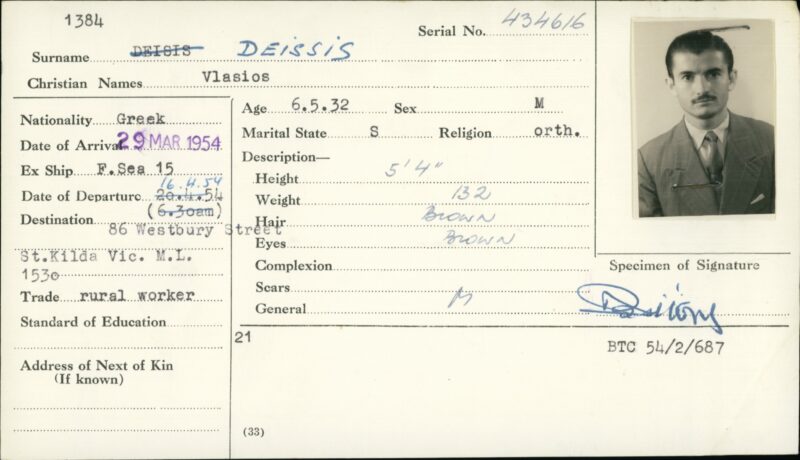 1384
Serial No. 434616
Surname DEISIS DEISSIS
Christian Names Vlasios
Nationality Greek
Date of Arrival 29 MAR 1954
Ex Ship F.Sea 15
16.4.54
Date of Departure 20.4.54
(6.30am)
Destination 86 Westbury Street
St.Kilda Vic. M.L.
1530
Trade rural worker
Standard of Education
Address of Next of Kin
(If known)
Age 6.5.32 Sex M
Marital State S Religion orth.
Description—
Height 5'4"
Weight 132
Hair BROWN
Eyes BROWN
Complexion
Scars
General M
21
(33)
Specimen of Signature
BTC 54/2/687